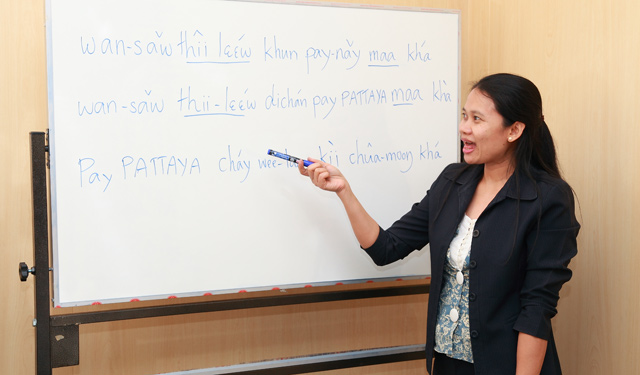 wan-sǎw thîi lɛɛ́w khun pay-nǎy maa khá
wan-sǎw thîi-lɛɛ́w dichán pay PATTAYA maa khà
Pay PATTAYA cháy kìi chûa-mooŋ khá